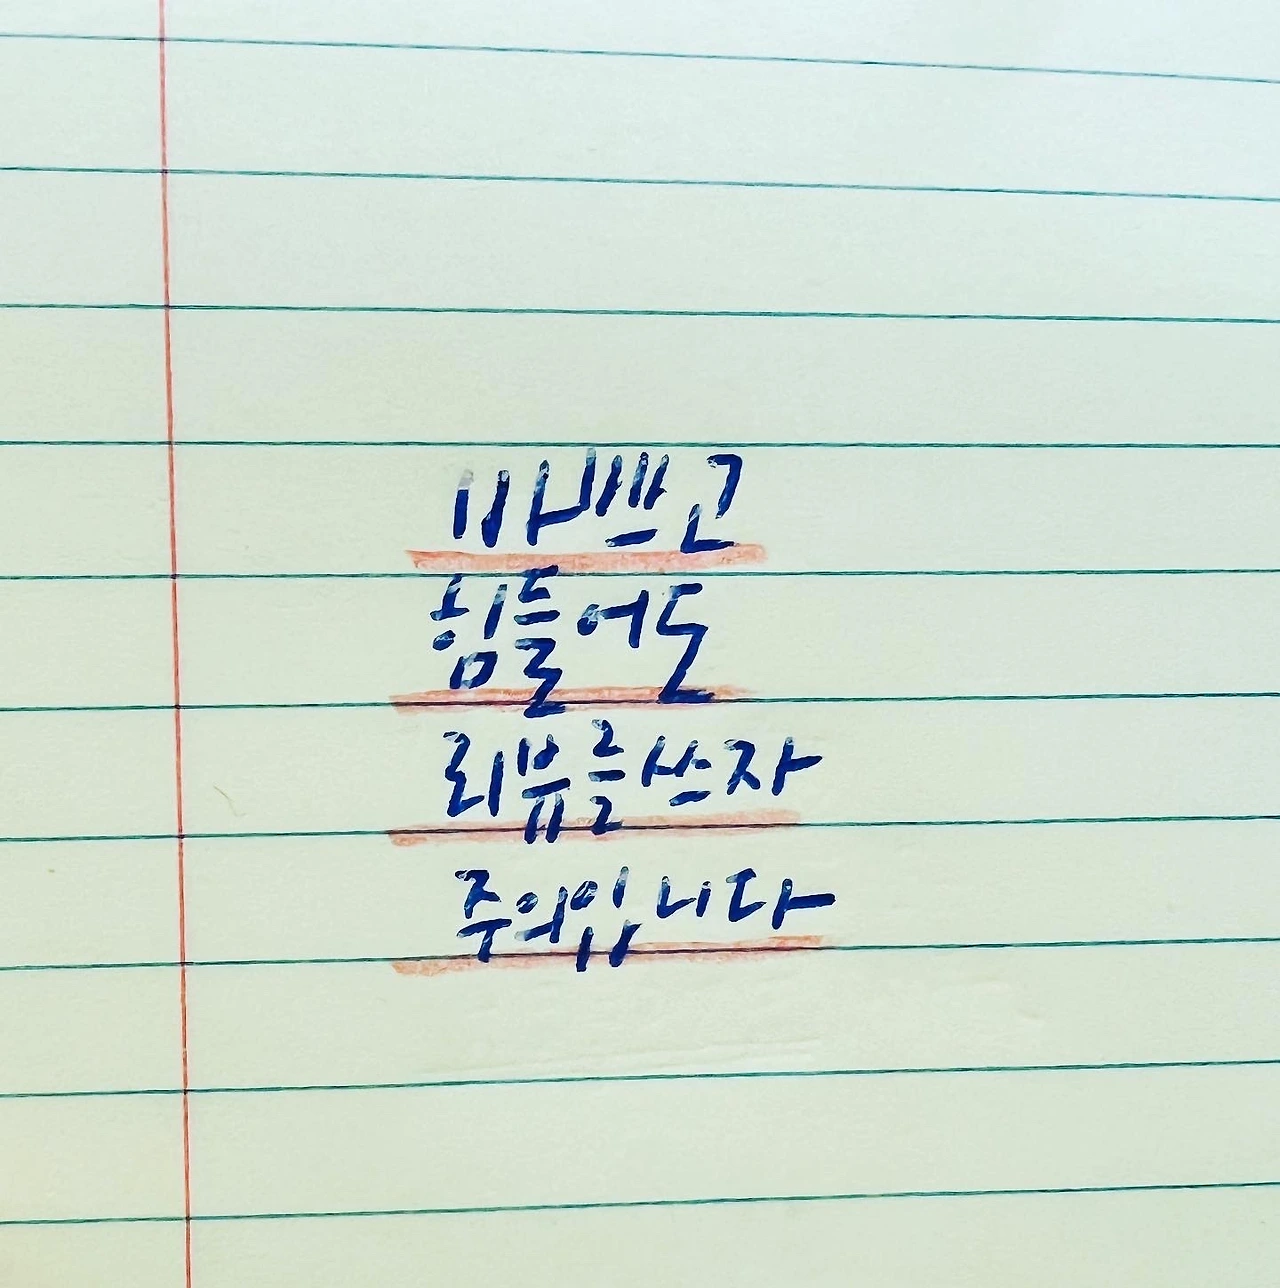 바쁘고
힘들어도
리뷰를쓰자
주의입니다